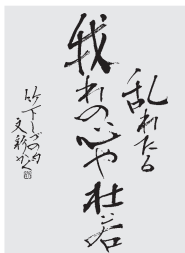 乱れたる
我れの心や杜若
竹下しづの女